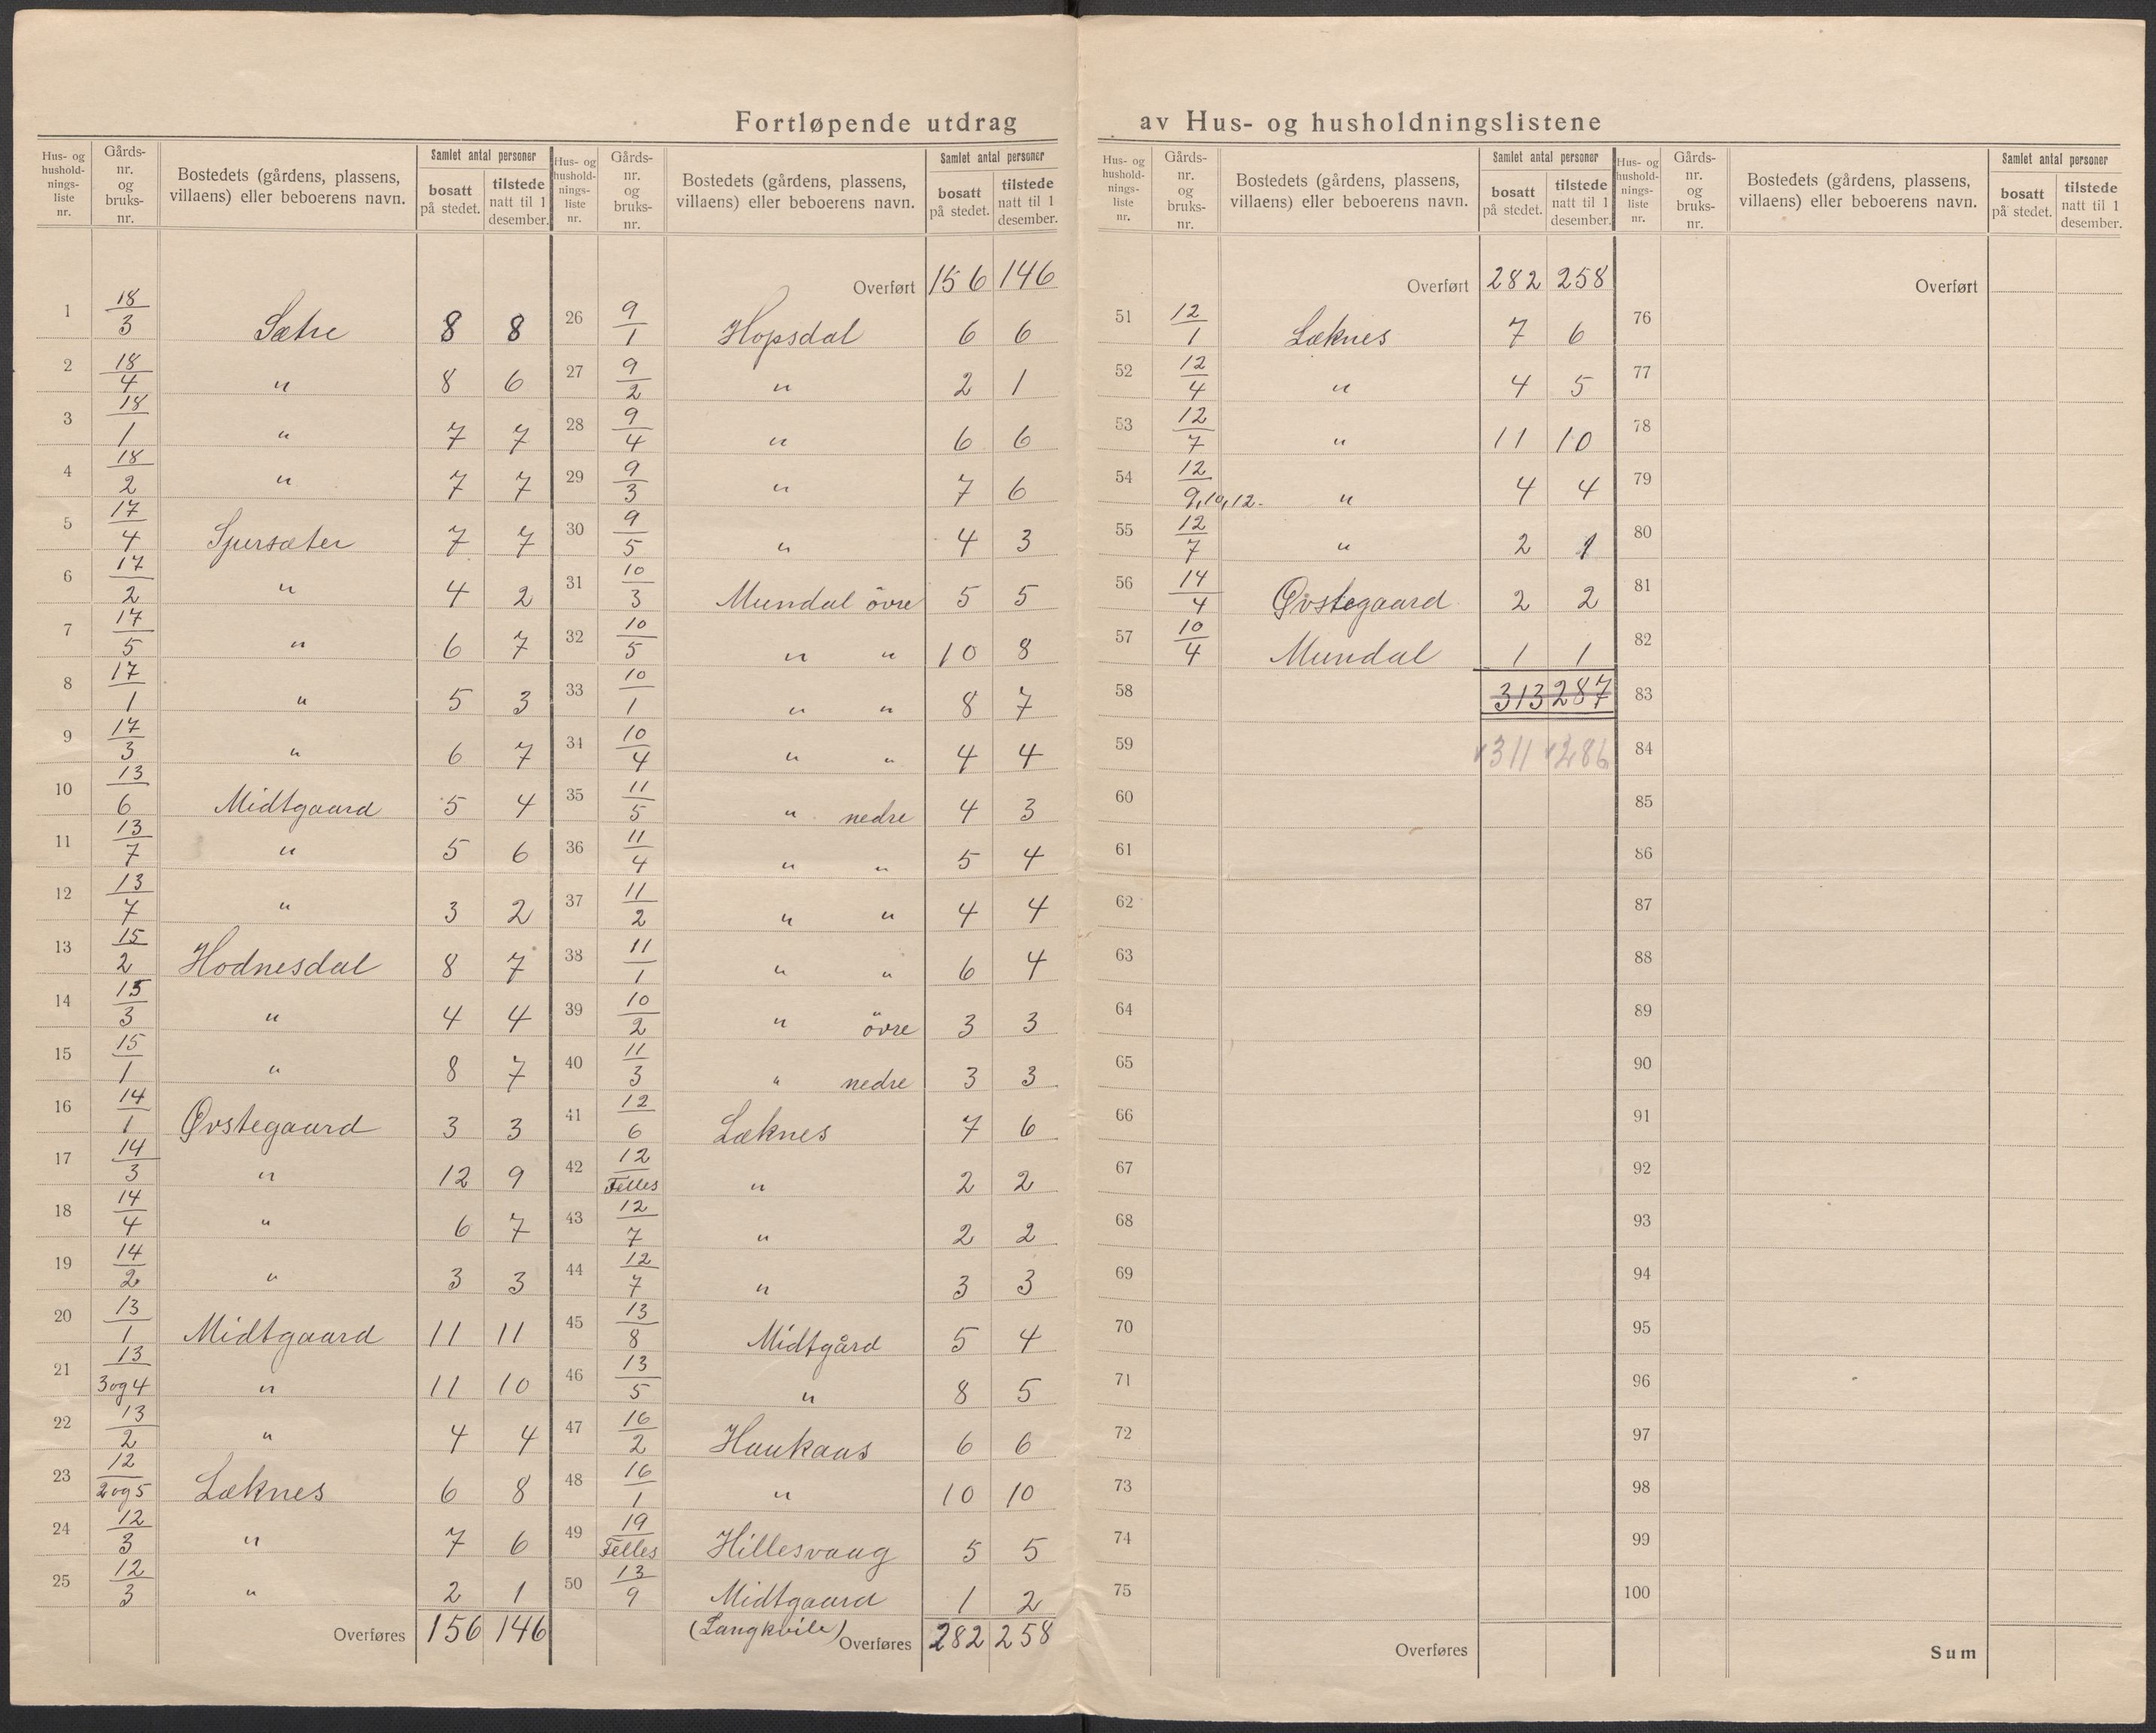 Fortløpende utdrag av Hus- og husholdningslistene
Hus- og husholdnings-liste nr. | Gårds-nr. og bruks-nr. | Bostedets (gårdens, plassens, villaens) eller beboerens navn. | Samlet antal personer | bosatt på stedet. | tilstede natt til 1 desember.
1 18/3 Sætre 8 8
2 18/4 " 8 6
3 18/1 " 7 7
4 18/2 " 7 7
5 17/4 Sjursæter 7 7
6 17/2 " 4 2
7 17/5 " 6 7
8 17/1 " 5 3
9 17/3 " 6 7
10 13/6 Midtgaard 5 4
11 13/7 " 5 6
12 13/7 " 3 2
13 15/2 Hodnesdal 8 7
14 15/3 " 4 4
15 15/1 " 8 7
16 14/1 Øvstegaard 3 3
17 14/3 " 12 9
18 14/4 " 6 7
19 14/2 " 3 3
20 13/1 Midtgaard 11 11
21 13/3 og 4 " 11 10
22 13/2 " 4 4
23 12/2 og 5 Læknes 6 8
24 12/3 " 7 6
25 12/3 " 2 1
Overføres 156 146
Hus- og husholdnings-liste nr. | Gårds-nr. og bruks-nr. | Bostedets (gårdens, plassens, villaens) eller beboerens navn. | Samlet antal personer | bosatt på stedet. | tilstede natt til 1 desember.
Overført 156 146
26 9/1 Hopsdal 6 6
27 9/2 " 2 1
28 9/4 " 6 6
29 9/3 " 7 6
30 9/5 " 4 3
31 10/3 Mundal övre 5 5
32 10/5 " " 10 8
33 10/1 " " 8 7
34 10/4 " " 4 4
35 11/5 " nedre 4 3
36 11/4 " " 5 4
37 11/2 " " 4 4
38 11/1 " " 6 4
39 10/2 " övre 3 3
40 11/3 " nedre 3 3
41 12/6 Læknes 7 6
42 12/Felles " 2 2
43 12/7 " 2 2
44 12/7 " 3 3
45 13/8 Midtgård 5 4
46 13/5 " 8 5
47 16/2 Haukaas 6 6
48 16/1 " 10 10
49 19/Felles Hillesvaag 5 5
50 13/9 Midtgaard 1 2
(Langkvile) Overføres 282 258
Hus- og husholdnings-liste nr. | Gårds-nr. og bruks-nr. | Bostedets (gårdens, plassens, villaens) eller beboerens navn. | Samlet antal personer | bosatt på stedet. | tilstede natt til 1 desember.
Overført 282 258
51 12/1 Læknes 7 6
52 12/4 " 4 5
53 12/7 " 11 10
54 12/9,10,12. " 4 4
55 12/7 " 2 1
56 14/4 Øvstegaard 2 2
57 10/4 Mundal 1 1
58 313 287
59 311 286
60
61
62
63
64
65
66
67
68
69
70
71
72
73
74
75
Overføres
Hus- og husholdnings-liste nr. | Gårds-nr. og bruks-nr. | Bostedets (gårdens, plassens, villaens) eller beboerens navn. | Samlet antal personer | bosatt på stedet. | tilstede natt til 1 desember.
Overført
76
77
78
79
80
81
82
83
84
85
86
87
88
89
90
91
92
93
94
95
96
97
98
99
100
Sum